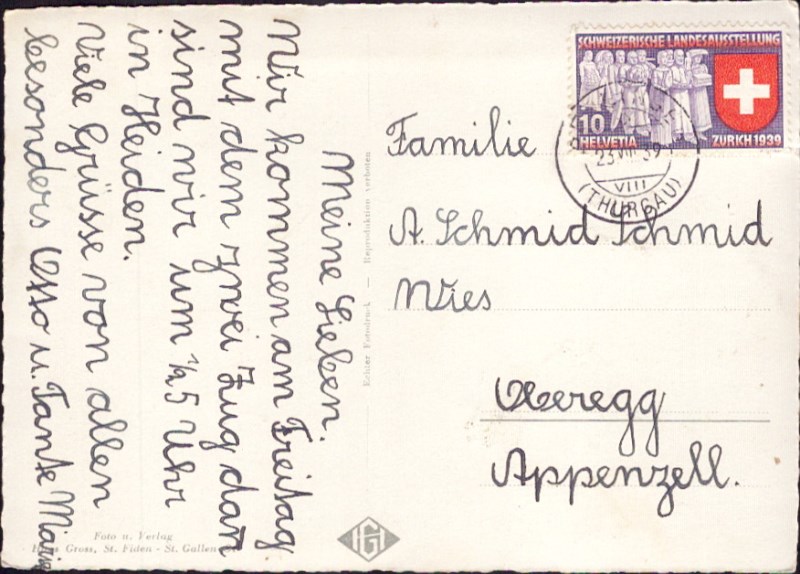 Meine Lieben.
Wir kommen am Freitag
mit dem zwei Zug dan
sind wir um ½5 Uhr
in Heiden.
Viele Grüsse von allen
besonders Otto u. Tante Marie
Echter Fotodruck — Reproduktion verboten
Foto u. Verlag
Hans Gross, St. Fiden - St. Gallen
HG
SCHWEIZERISCHE LANDESAUSSTELLUNG
10
HELVETIA
ZÜRICH 1939
23 VIII 39
VIII
(THURGAU)
Familie
A. Schmid Schmid
Wies
Oberegg
Appenzell.